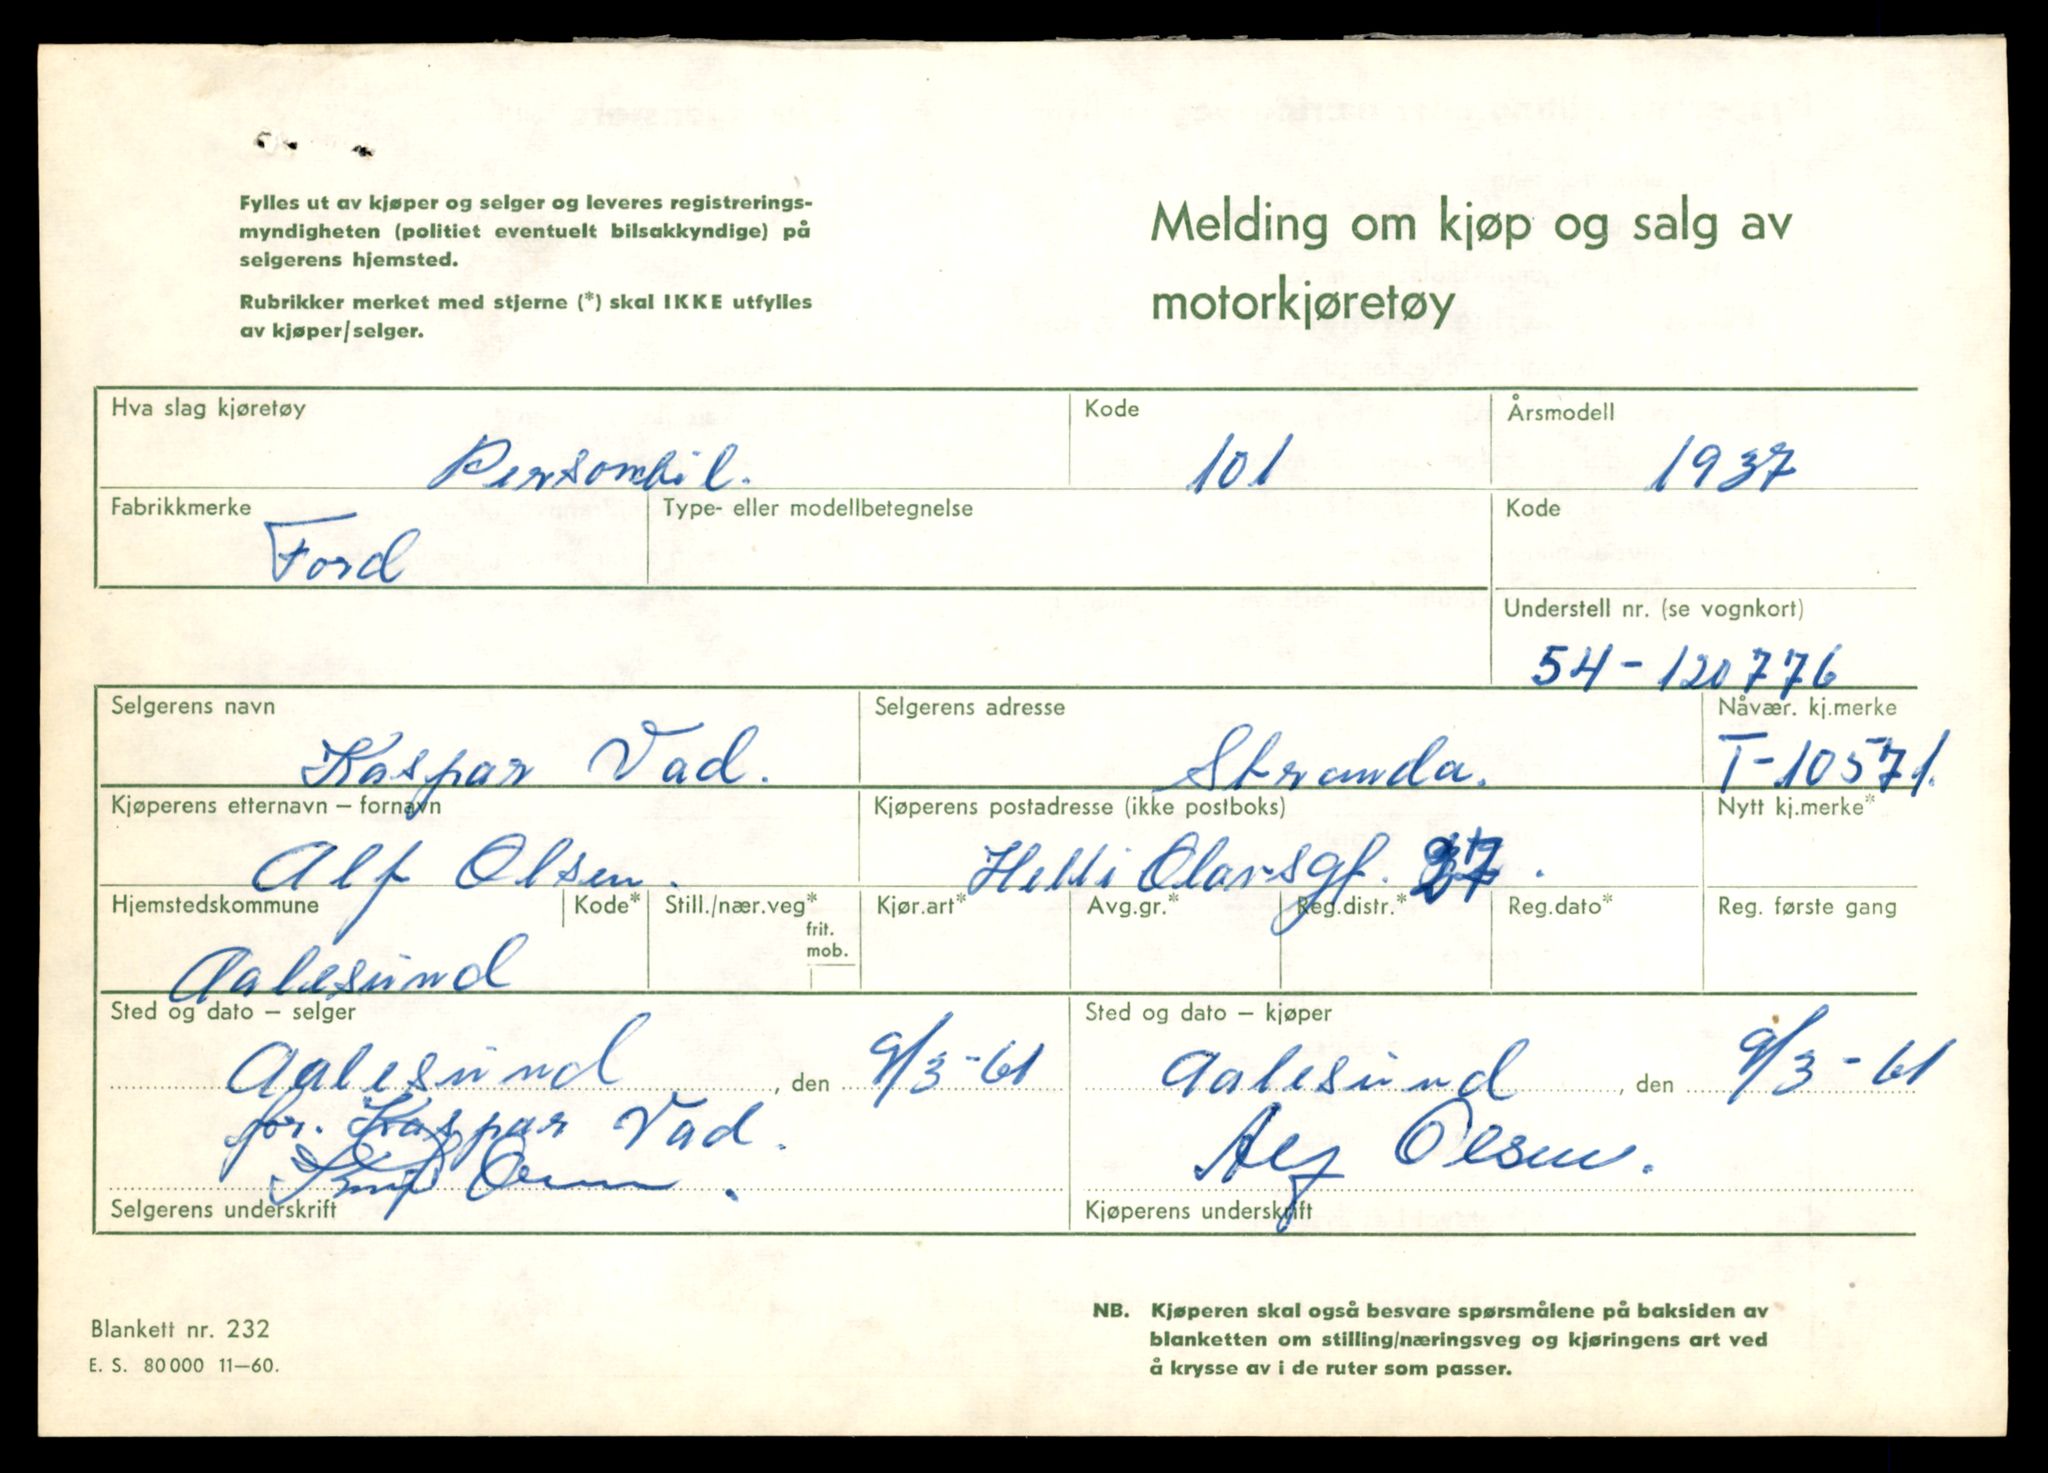 Fylles ut av kjøper og selger og leveres registrerings-
myndigheten (politiet eventuelt bilsakkyndige) på
selgerens hjemsted.
Rubrikker merket med stjerne (*) skal IKKE utfylles
av kjøper/selger.
Melding om kjøp og salg av
motorkjøretøy
Hva slag kjøretøy Kode Årsmodell
Personbil. 101 1937
Fabrikkmerke Type- eller modellbetegnelse Kode
Ford
Understell nr. (se vognkort)
54-120776
Selgerens navn Selgerens adresse Nåvær. kj.merke
Kaspar Vad. Stranda. T-10571.
Kjøperens etternavn – fornavn Kjøperens postadresse (ikke postboks) Nytt kj.merke*
Alf Olsen. Olavsgt.
Hjemstedskommune Kode* Still./nær.veg* Kjør.art* Avg.gr.* Reg.distr.* Reg.dato* Reg. første gang
frit.
mob.
Aalesund
Sted og dato – selger Sted og dato – kjøper
Aalesund, den 9/3-61 Aalesund, den 9/3-61
for. Kaspar Vad. Alf Olsen.
Selgerens underskrift Kjøperens underskrift
Blankett nr. 232
E. S. 80000 11–60.
NB. Kjøperen skal også besvare spørsmålene på baksiden av
blanketten om stilling/næringsveg og kjøringens art ved
å krysse av i de ruter som passer.